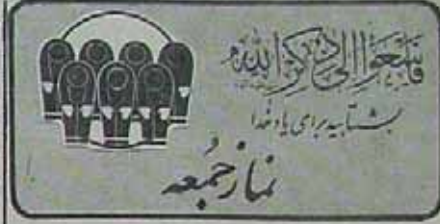 فَاسْعَوْا إِلَى ذِكْرِ اللَّهِ
بشتابید برای یاد خدا
نماز جُمعه